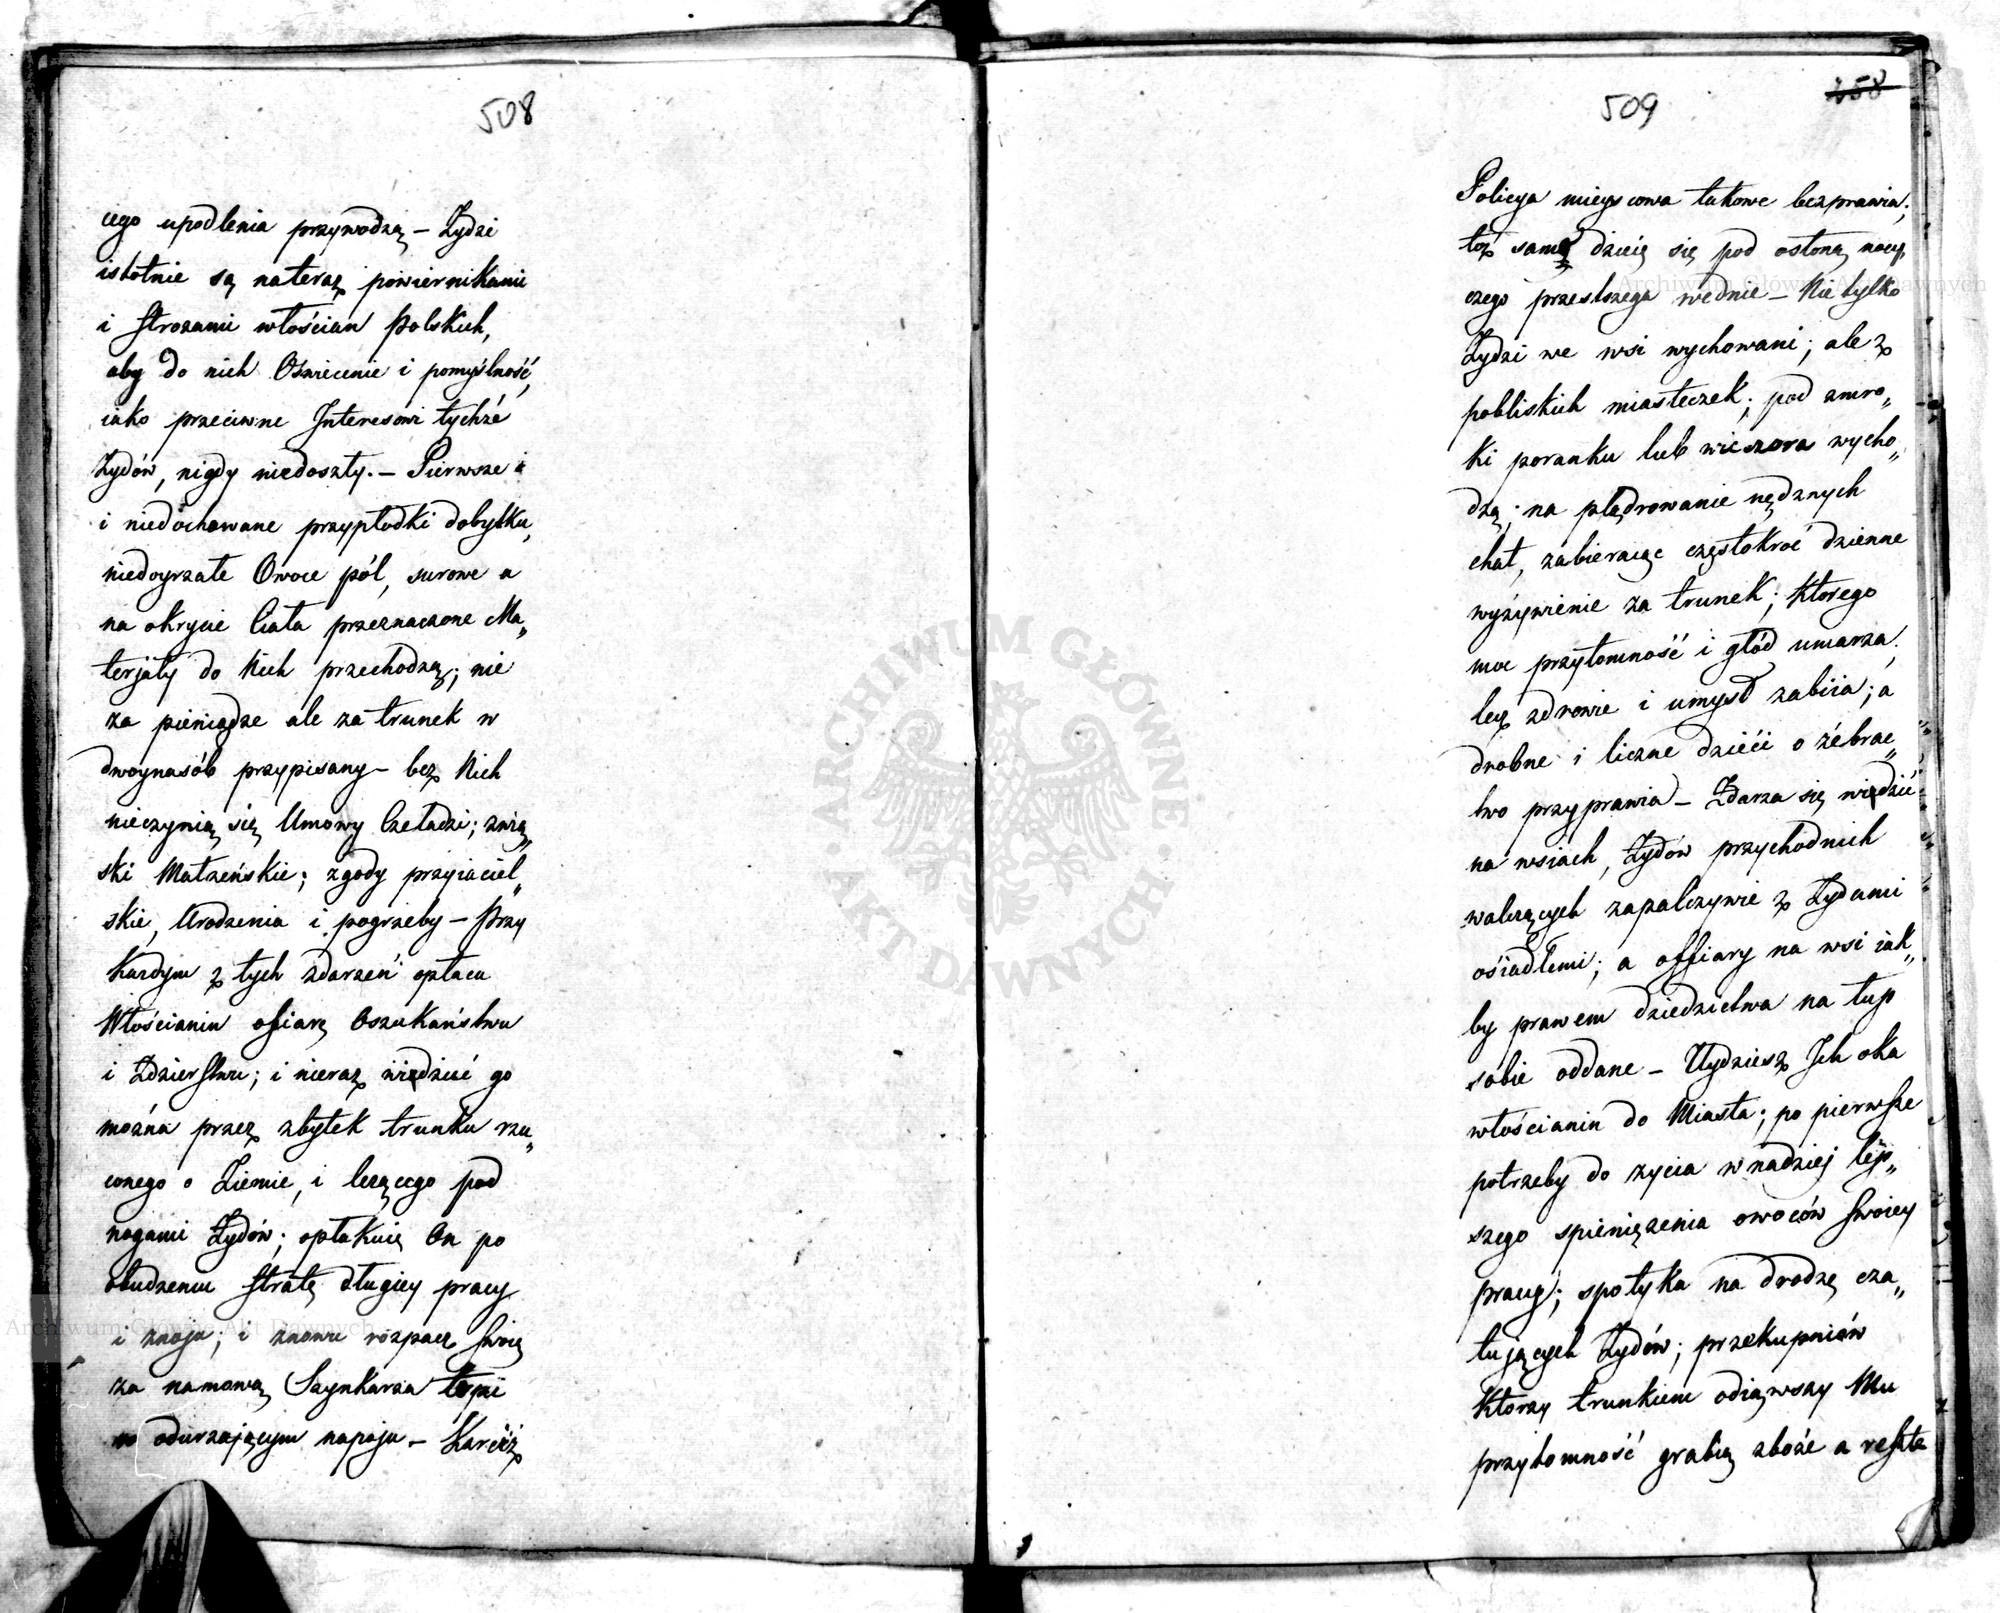 508
cego upodlenia przywodzą – Żydzi
istotnie są nateraz powiernikami
i Strozami włościan Polskich,
aby do nich Oświecenie i pomyślność,
iako przeciwne Interesowi tychże
Żydów, nigdy niedoszły. – Pierwsze i
i niedochowane przypłodki dobytku,
niedoyrzałe Owoce pól, surowe a
na okrycie Ciała przeznaczone Ma„
terjały do Nich przechodzą; nie
za pieniądze ale za trunek w
dwoynasób przypisany – bez Nich
nieczynią się Umowy Czeladzi; zwią„
ski Małzeńskie; zgody przyiaciel„
skie, Urodzenia i pogrzeby – Przy
Kazdym z tych zdarzeń opłaca
Włościanin ofiarę Oszukaństwu
i Zdzierstwu; i nieraz widzieć go
mozna przez zbytek trunku rzu„
conego o Ziemie, i lezącego pod
nogami Żydów; opłakuię On po
obudzeniu stratę długiey pracy
i znoju; i znowu rozpacz swoię
za namową Szynkarza topi
w odurzającym napoju – Karciż
509
158
Policya mieyscowa takowe bezprawia;
toz samo dzieię się pod osłoną nocy,
czego przestrzega wednie – Nie tylko
Żydzi we wsi wychowani; ale z
pobliskich miasteczek; pod zmro„
ki poranku lub wieczora wycho„
dzą; na plądrowanie nędznych
chat, zabieraiąc częstokroć dzienne
wyżywienie za trunek; Którego
moc przytomność i głód umarza;
lecz zdrowie i umysł zabiia; a
drobne i liczne dzieci o żebrac„
two przyprawia – Zdarza się widzieć
na wsiach, Żydów przychodnich
walczących zapalczywie z Żydami
osiadłemi; a offiary na wsi iak„
by prawem dziedzictwa na łup
sobie oddane – Uydziesz Ich oka
włościanin do Miasta; po pierwsze
potrzeby do zycia w nadziej lep„
szego spienięzenia owoców swoiey
pracy; spotyka na drodze cza„
tujących Żydów; przekupniów
Którzy trunkiem odiąwszy Mu
przytomność grabią zboże a resztę
Archiwum Główne Akt Dawnych
Archiwum Główne Akt Dawnych
ARCHIWUM GŁÓWNE AKT DAWNYCH